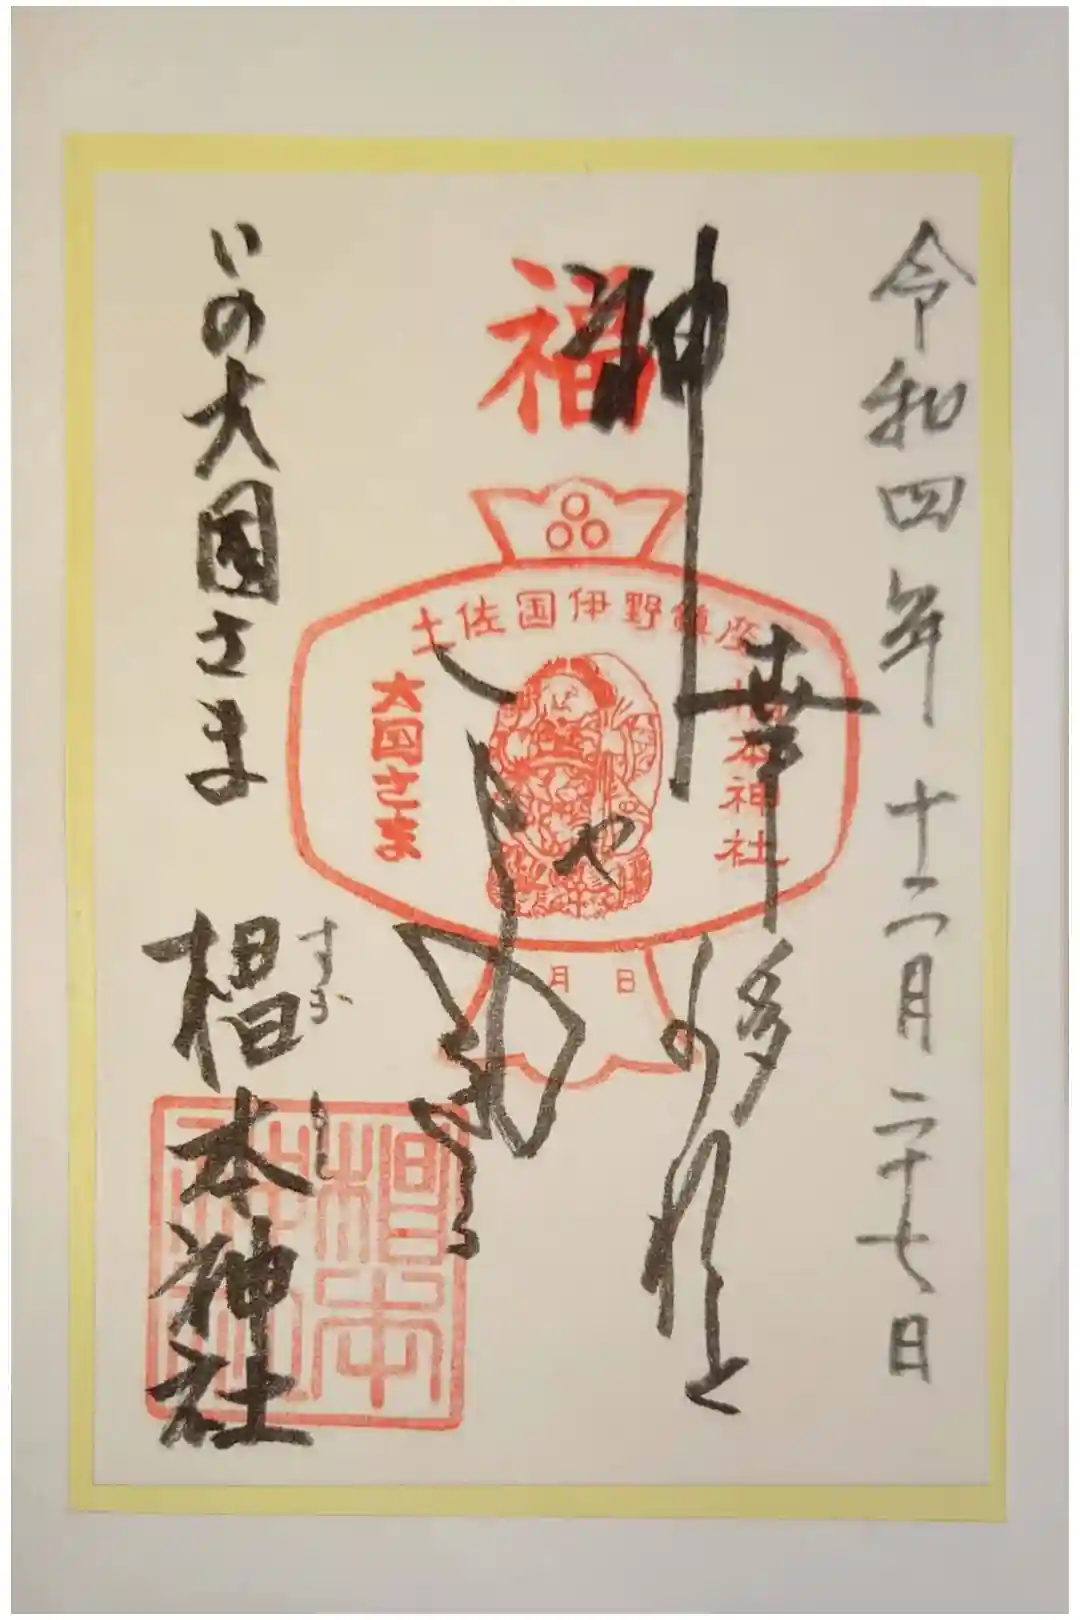 令和四年十二月二十七日
福
神
幸多かれと
土佐国伊野鎮座
椙本神社
大国さま
月 日
いの大国さま
椙本神社
すぎ もと
椙本神社